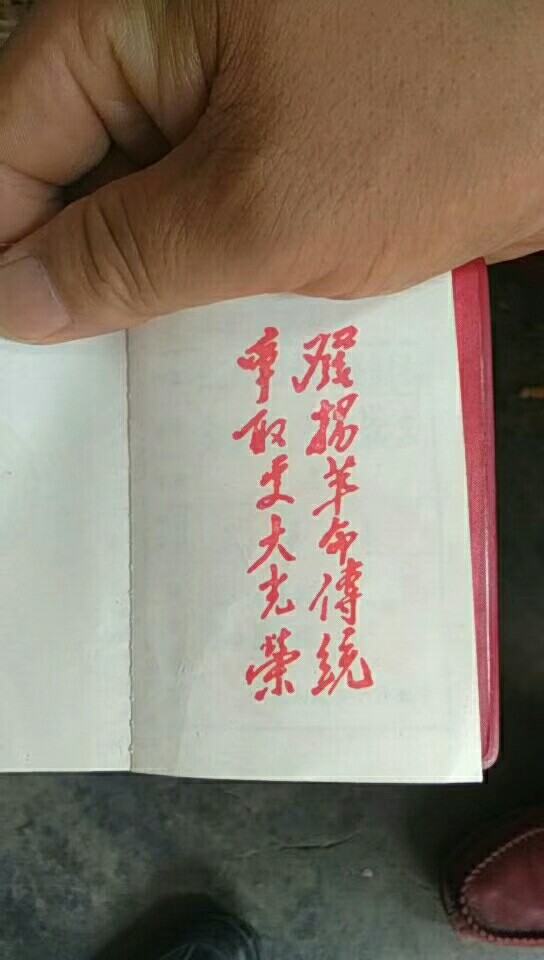 發揚革命傳統
爭取更大光榮